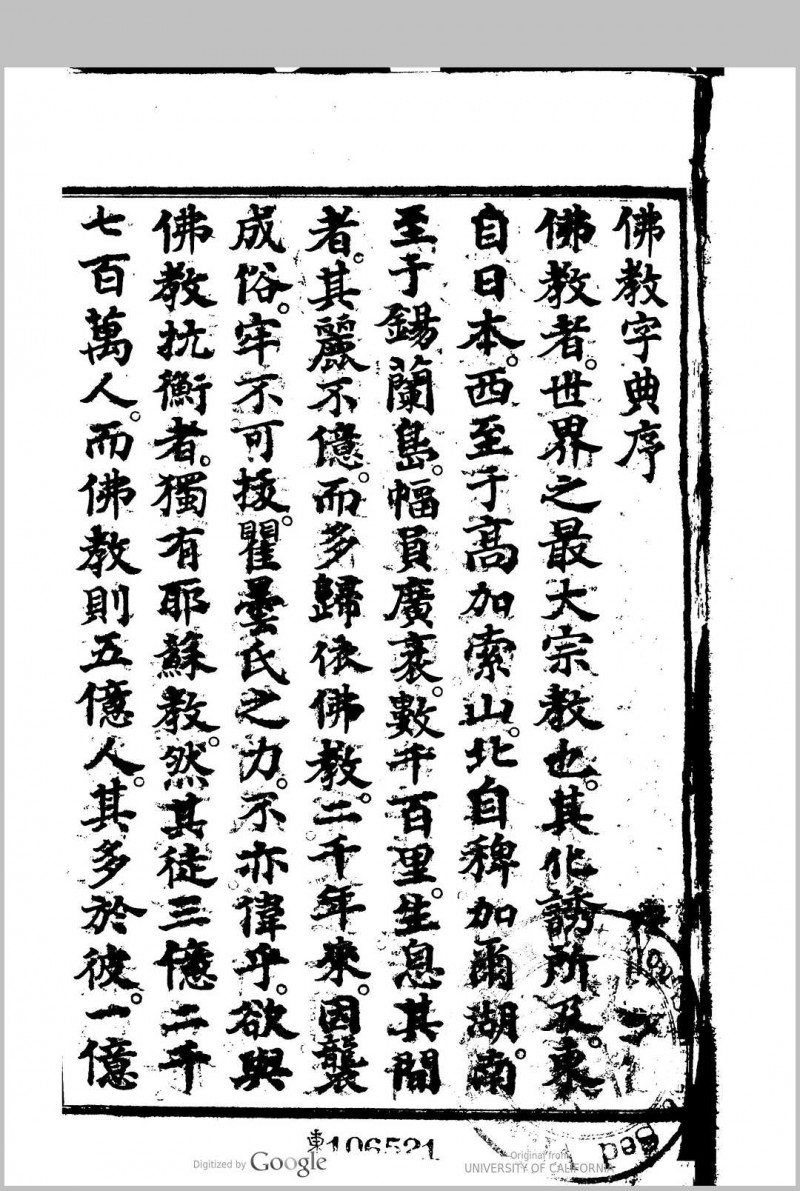 佛教字典序
佛教者。世界之最大宗教也。其化誘所及。東
自日本。西至于高加索山。北自稗加爾湖。南
至于錫蘭島。幅員廣袤。數千百里。生息其間
者。其麗不億。而多歸依佛教。二千年來。因襲
成俗。牢不可拔。瞿曇氏之力。不亦偉乎。欲與
佛教抗衡者。獨有耶蘇教。然其徒三億二千
七百萬人。而佛教則五億人。其多於彼。一億
東106521
Digitized by Google
Original from
UNIVERSITY OF CALIFORNIA